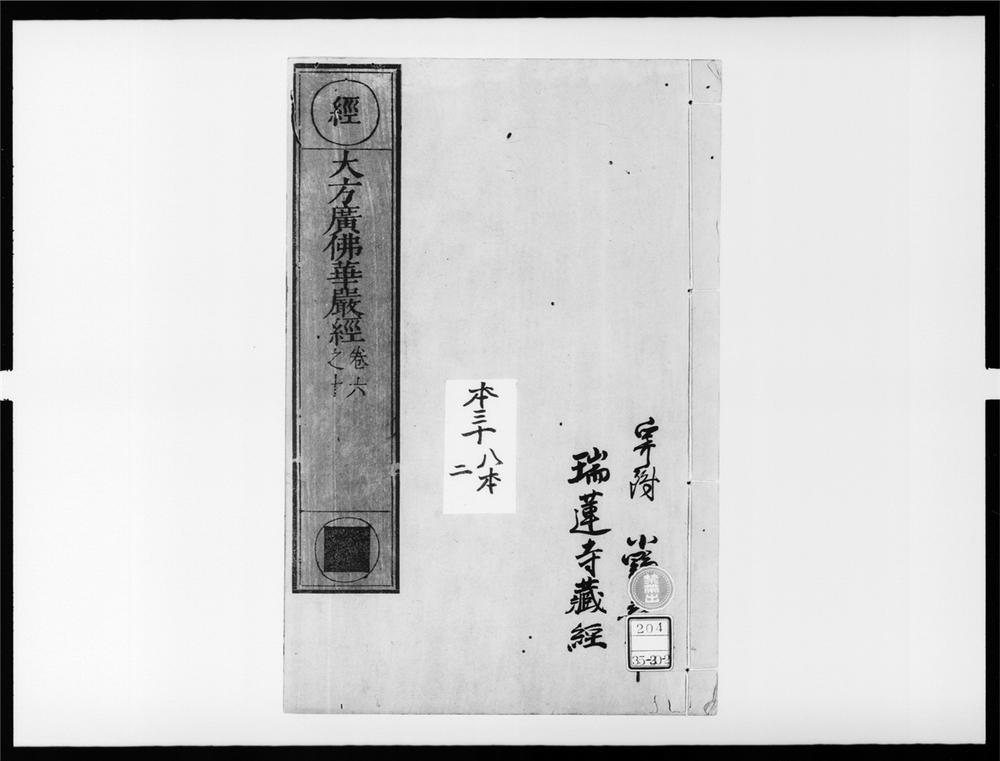 寄附 小野
瑞蓮寺藏經
本三十八本
二
經
大方廣佛華嚴經 卷六
之十
204
35-202